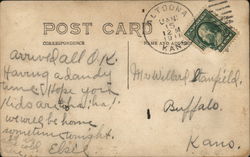 POST CARD
CORRESPONDENCE
NAME AND ADDRESS
ALTOONA
JAN
15
12 M
KAN.
Arrived all O.K.
Having a dandy
time. Hope your
Kids are
we will be home
sometime tonight.
Elsie
Mr. Willard Banfield,
Buffalo.
Kans.